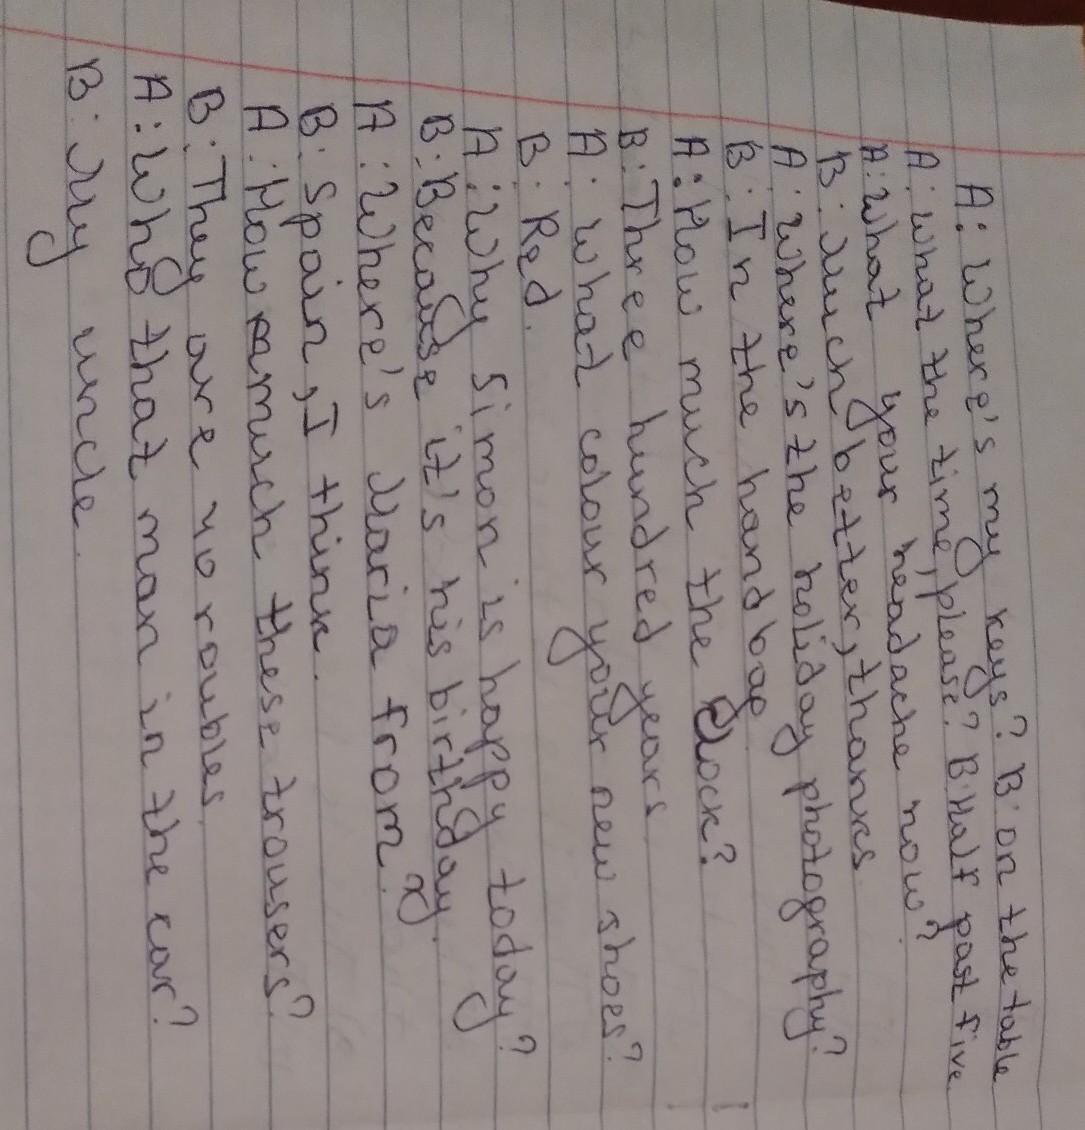 A: Where's my keys? B: on the table
A: what the time, please? B: Half past five
A: What your headache now?
B: Much better, thanks.
A: Where's the holiday photography?
B: In the handbag
A: How much the clock?
B: Three hundred years
A: What colour your new shoes?
B: Red.
A: Why Simon is happy today?
B: Because it's his birthday.
A: Where's Maria from?
B: Spain, I think.
A: How much these trousers?
B: They are 40 roubles.
A: Who that man in the car?
B: My uncle.